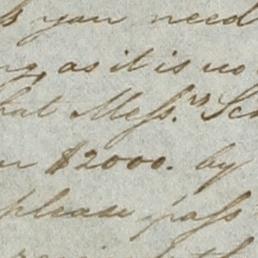 you need
as it is no
that Mess.rs
$2000. by
please pass